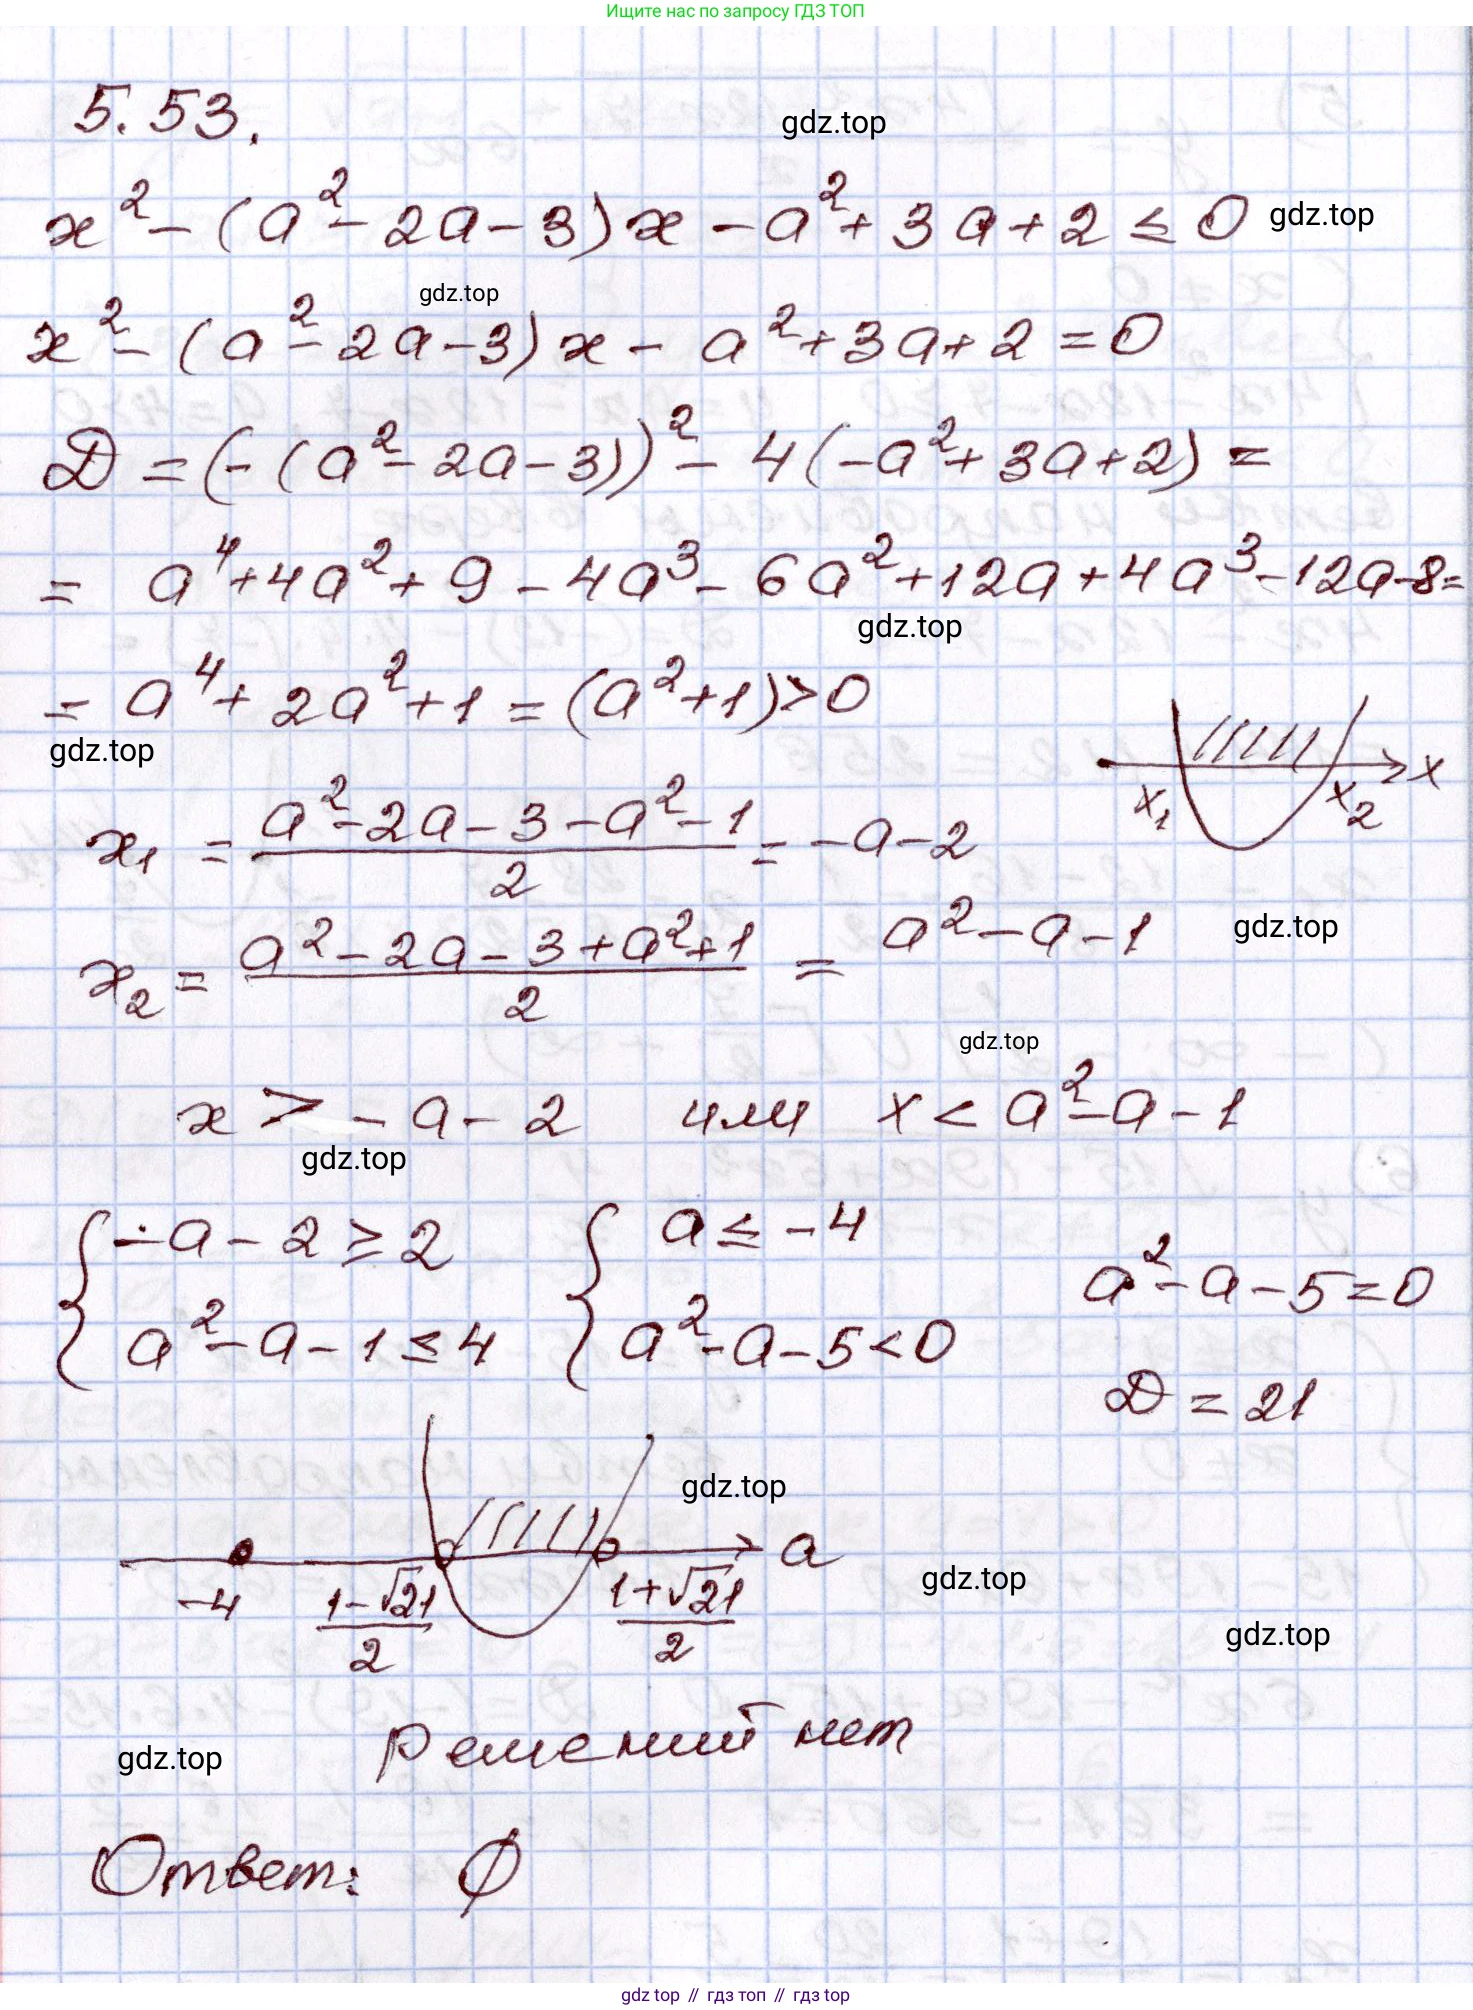 Ищите нас по запросу ГДЗ ТОП
5.53.
gdz.top
x² - (a² - 2a - 3)x - a² + 3a + 2 ≤ 0
gdz.top
gdz.top
x² - (a² - 2a - 3)x - a² + 3a + 2 = 0
D = (-(a² - 2a - 3))² - 4(-a² + 3a + 2) =
= a⁴ + 4a² + 9 - 4a³ - 6a² + 12a + 4a³ - 12a - 8 =
gdz.top
= a⁴ + 2a² + 1 = (a² + 1) > 0
gdz.top
x₁ x₂ x
x₁ = (a² - 2a - 3 - a² - 1)/2 = -a - 2
x₂ = (a² - 2a - 3 + a² + 1)/2 = a² - a - 1
gdz.top
gdz.top
x > -a - 2 или x < a² - a - 1
gdz.top
{ -a - 2 ≥ 2 { a ≤ -4
a² - a - 1 ≤ 4 a² - a - 5 < 0
a² - a - 5 = 0
D = 21
gdz.top
a
-4 (1 - √21)/2 (1 + √21)/2
gdz.top
gdz.top
решений нет
gdz.top
Ответ: ∅
gdz top // гдз топ // гдз top